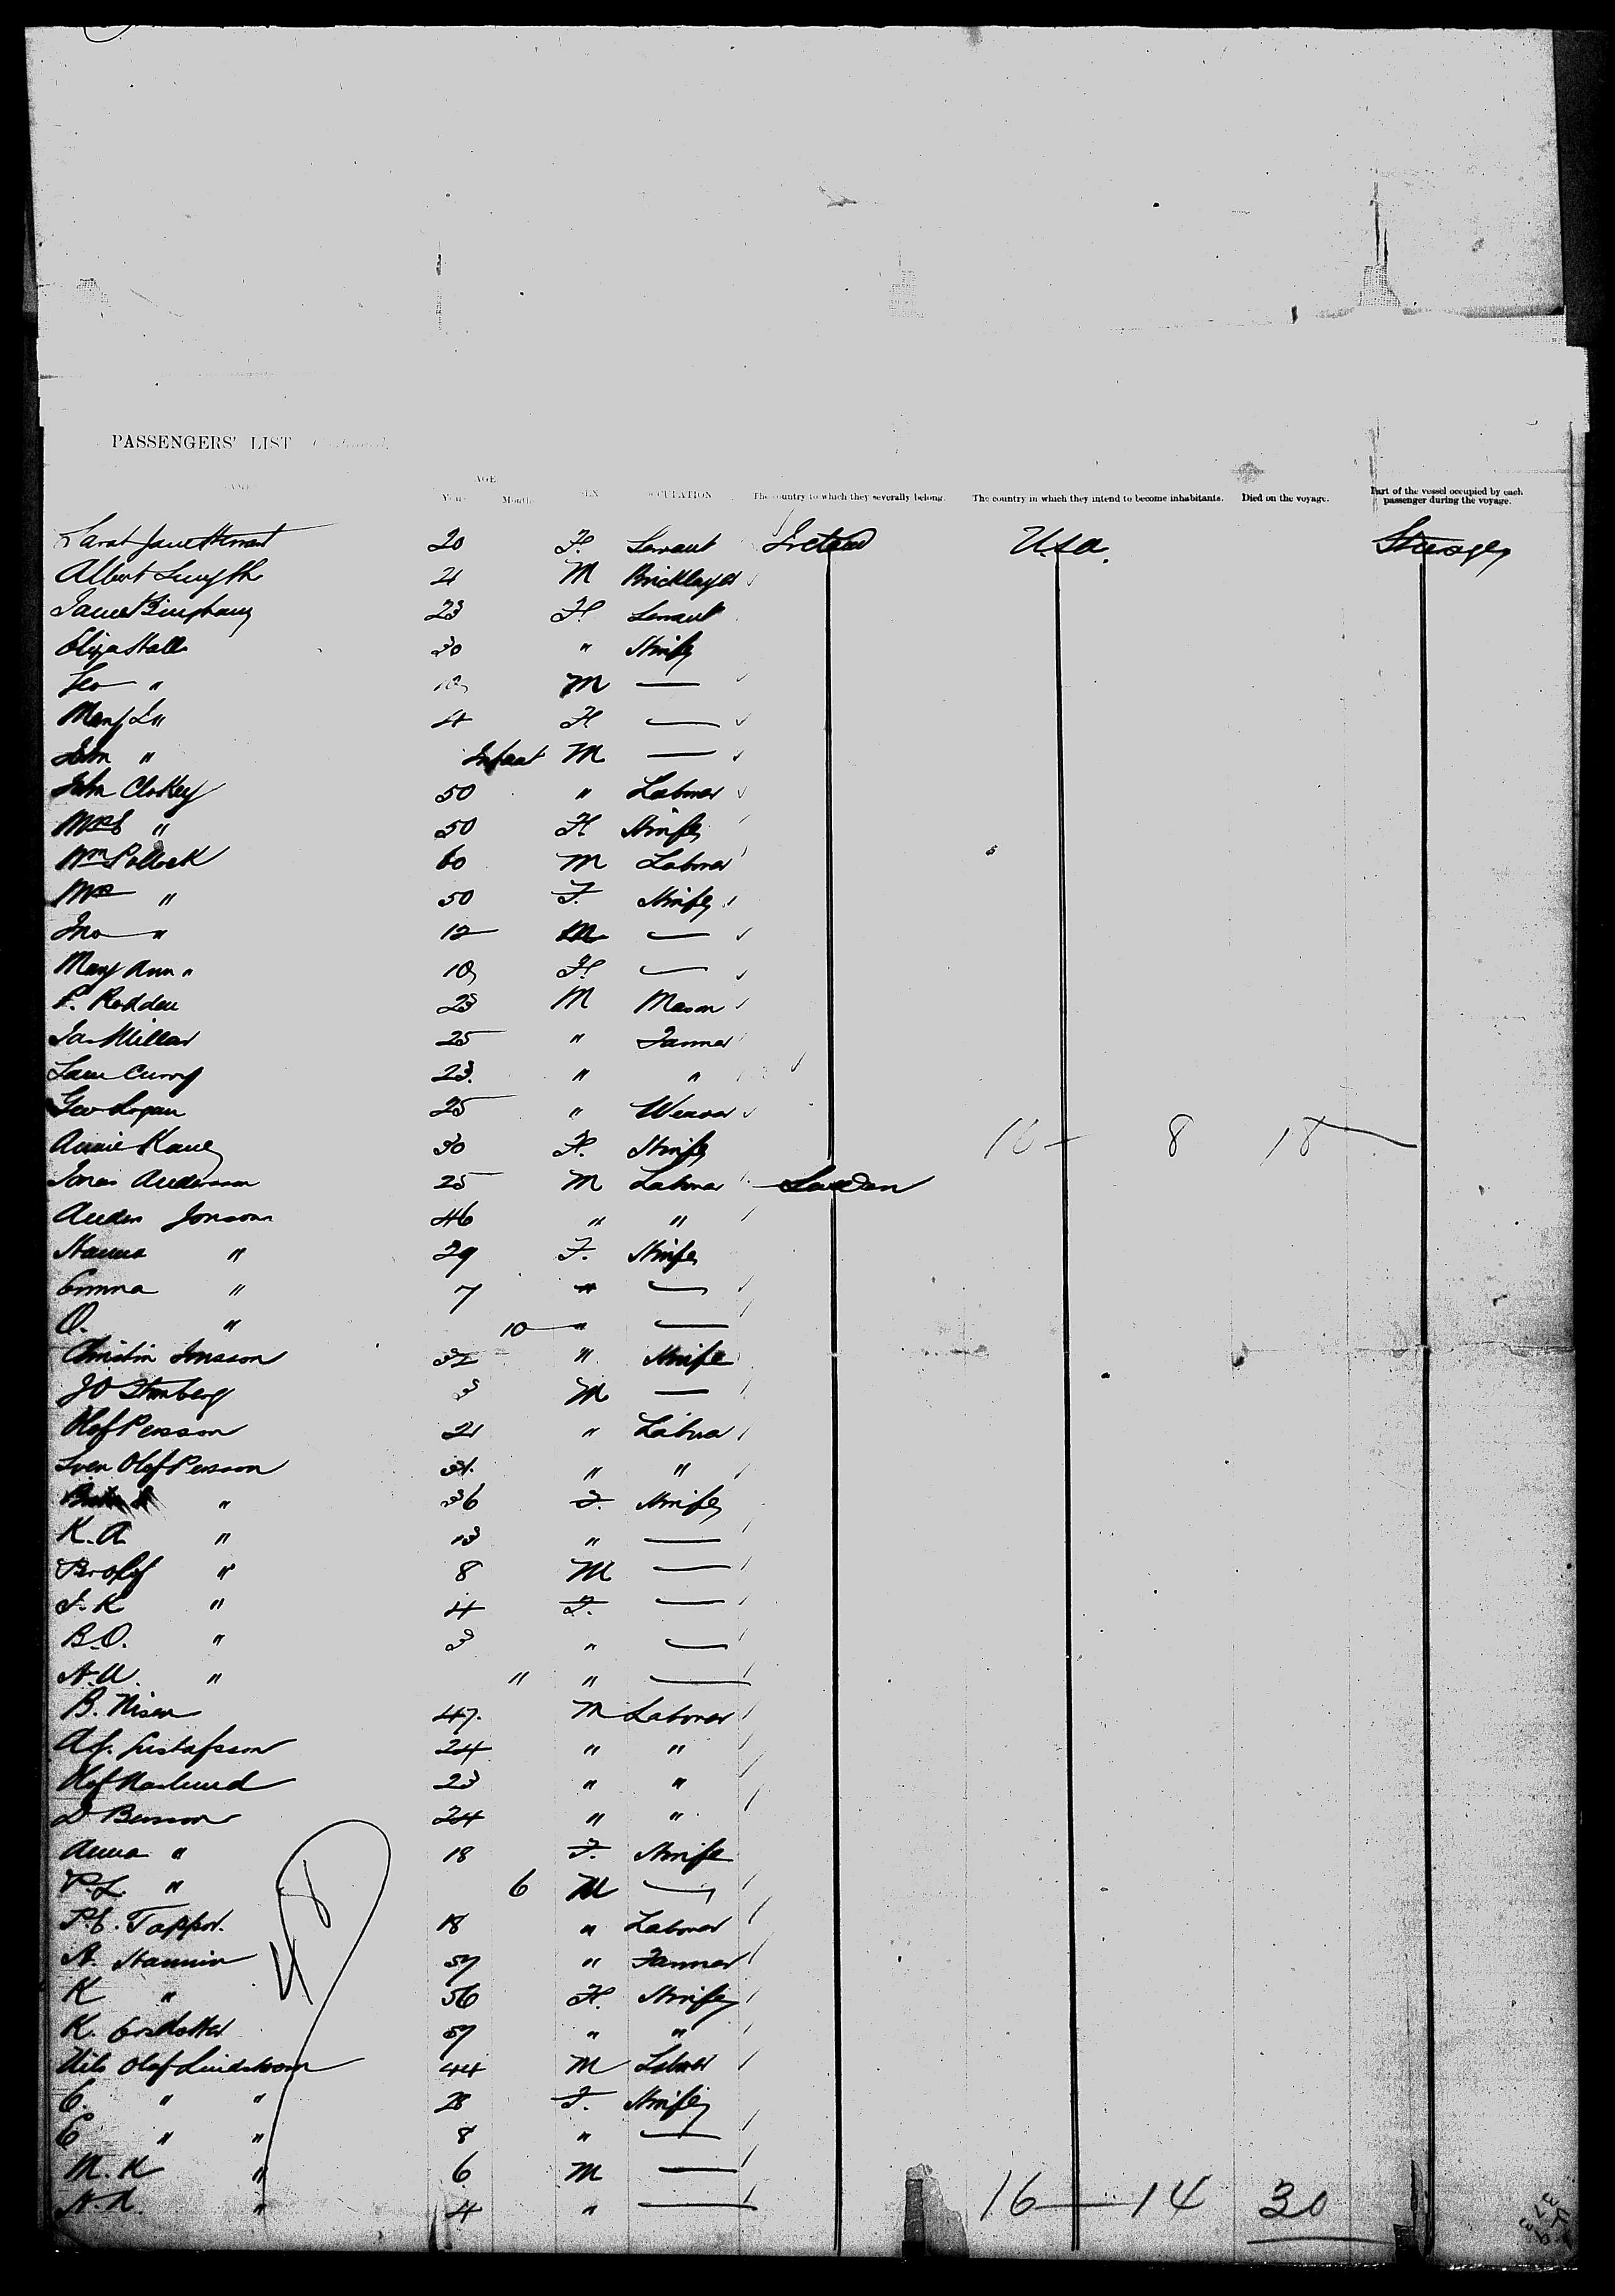 PASSENGERS' LIST
AGE
Years Months SEX OCCUPATION The country to which they severally belong. The country in which they intend to become inhabitants. Died on the voyage. Part of the vessel occupied by each passenger during the voyage.
Sarah Jane 20 F. Servant Ireland Usa. Steerage
Albert Smyth 21 M Bricklayer
Bingham 23 F Servant
Eliza Hall 30 " H wife
Geo " M —
Mary " 4 F —
John " Infant M —
John Clokey 50 " Laborer
Mrs " 50 F. H wife
Wm Pollock 60 M Laborer
Mrs " 50 F. H wife
Jno " 12 M —
Mary Ann " 10 F. —
P. Rodden 23 M Mason
Jas Millar 25 " Farmer
Curry 23. " "
Geo Logan 25 " Weaver
Annie Kane 30 F. H wife 10 — 8 18
Jonas Anderson 25 M Laborer Sweden
Anders Jonson 46 " "
Hanna " 29 F. H wife
Emma " 7 " —
O. " 10 " —
Christin Jonsson 32 " H wife
J O 3 M —
Olof Persson 21 " Labrer
Sven Olof Persson 31. " "
" 36 F. H wife
K. A. " 13 " —
Br Olof " 8 M —
J. K " 4 F. —
B. O. " 3 " —
A. U. " " " —
B. Nisen 47. M Laborer
Af. Gustafsson 24 " "
Olof 23 " "
D Benson 24 " "
Anna " 18 F. H wife
P. L. " 6 M —
P. E. 18 " Laborer
A. Hannin 57 " Farmer
K " 56 F. H wife
K. Ersdotter 57 " "
Nils Olof Lindstrom 44 M Labrer
C. " " 28 F. H wife
E " " 8 " —
M. K " 6 M —
A. K. " 4 " — 16 — 14 30
48